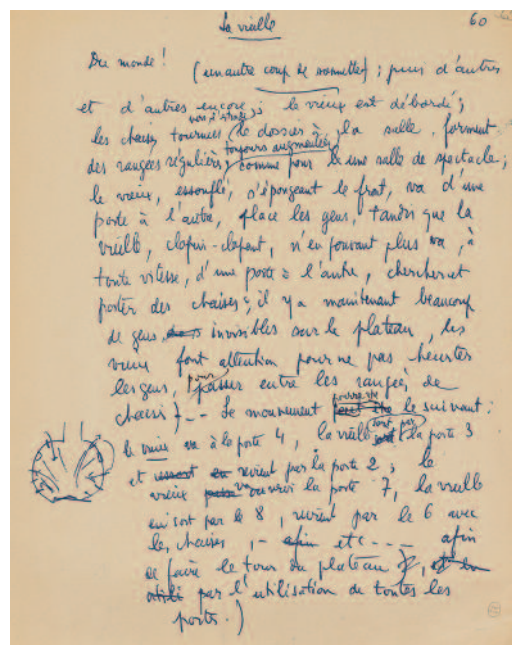 La vieille
60
Du monde ! (un autre coup de sonnette) ; puis d'autres
et d'autres encore ; le vieux est débordé ;
les chaises tournées le dossier à la salle, forment
toujours augmentées
des rangées régulières, comme pour une salle de spectacle ;
le vieux, essouflé, s'épongeant le front, va d'une
porte à l'autre, place les gens, tandis que la
vieille, clopin-clopant, n'en pouvant plus va, à
toute vitesse, d'une porte à l'autre, chercher et
porter des chaises ; il y a maintenant beaucoup
de gens invisibles sur le plateau, les
vieux font attention pour ne pas heurter
les gens, pour passer entre les rangées de
chaises. - - Le mouvement pourra être le suivant :
le vieux va à la porte 4, la vieille sort par la porte 3
et revient par la porte 2 ; le
vieux va ouvrir la porte 7, la vieille
en sort par le 8, revient par le 6 avec
les chaises, - afin etc - - - afin
de faire le tour du plateau, et en
utili par l'utilisation de toutes les
portes.)